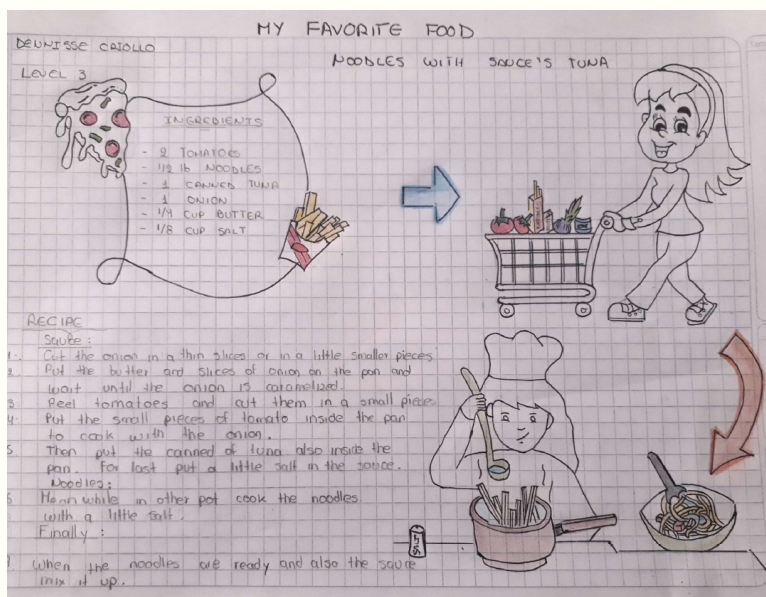 MY FAVORITE FOOD
DENNISSE CRIOLLO
NOODLES WITH SAUCE'S TUNA
LEVEL 3
INGREDIENTS
- 2 TOMATOES
- 1/2 lb NOODLES
- 1 CANNED TUNA
- 1 ONION
- 1/4 CUP BUTTER
- 1/8 CUP SALT
RECIPE
Sauce:
1. Cut the onion in a thin slices or in a little smaller pieces
2. Put the butter and slices of onion on the pan and
wait until the onion is caramelized.
3 Peel tomatoes and cut them in a small piece
4. Put the small pieces of tomato inside the pan
to cook with the onion.
5 Then put the canned of tuna also inside the
pan. For last put a little salt in the sauce.
Noodles:
6 Mean while in other pot cook the noodles
with a little salt.
Finally:
When the noodles are ready and also the sauce
mix it up.
SALT